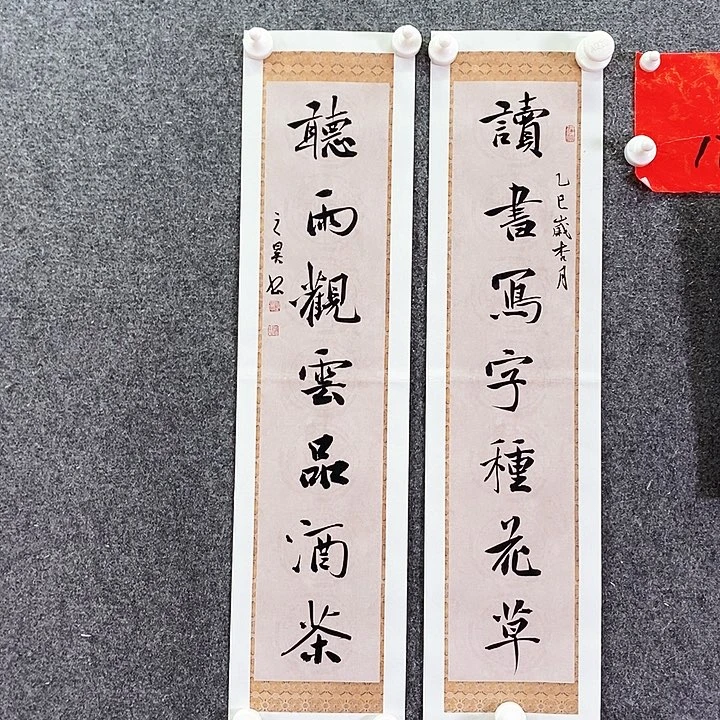 讀書寫字種花草
乙巳歲杏月
聽雨觀雲品酒茶
之昊書